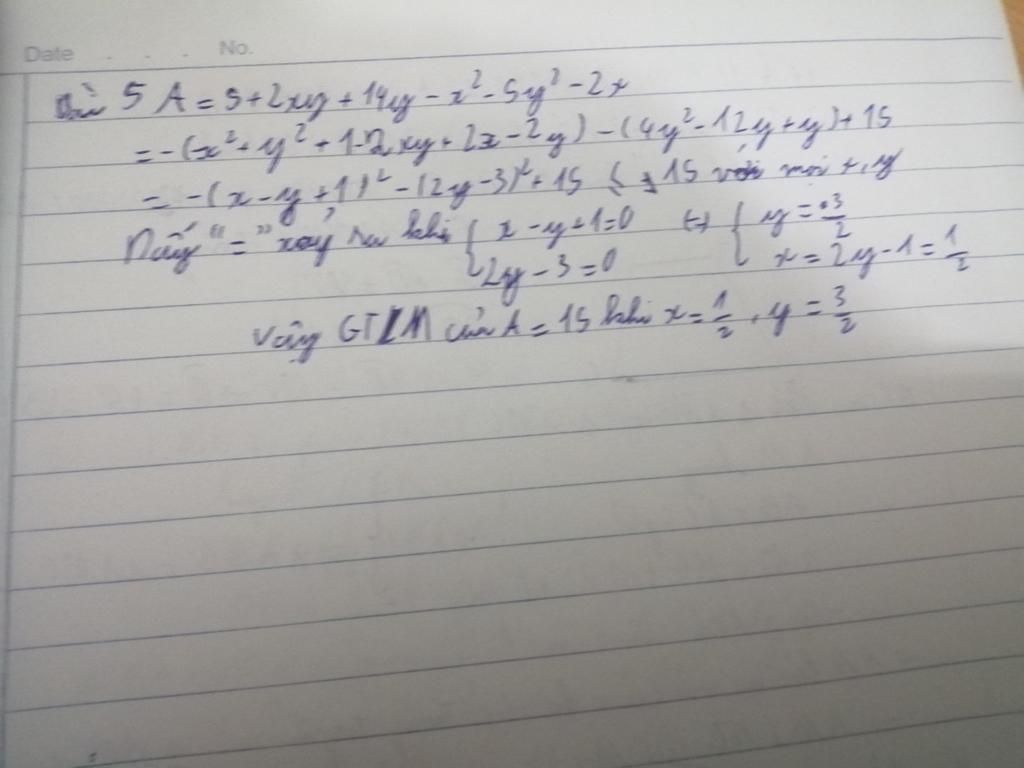 Date . . . No.
Bài 5 A = 5 + 2xy + 14y - x² - 5y² - 2x
= -(x² + y² + 1 - 2xy + 2x - 2y) - (4y² - 12y + y) + 15
= -(x - y + 1)² - (2y - 3)² + 15 ≤ 15 với mọi x, y
Dấu "=" xảy ra khi { x - y + 1 = 0 ⇔ { y = 3/2
{ 2y - 3 = 0 { x = 2y - 1 = 1/2
Vậy GTLN của A = 15 khi x = 1/2, y = 3/2